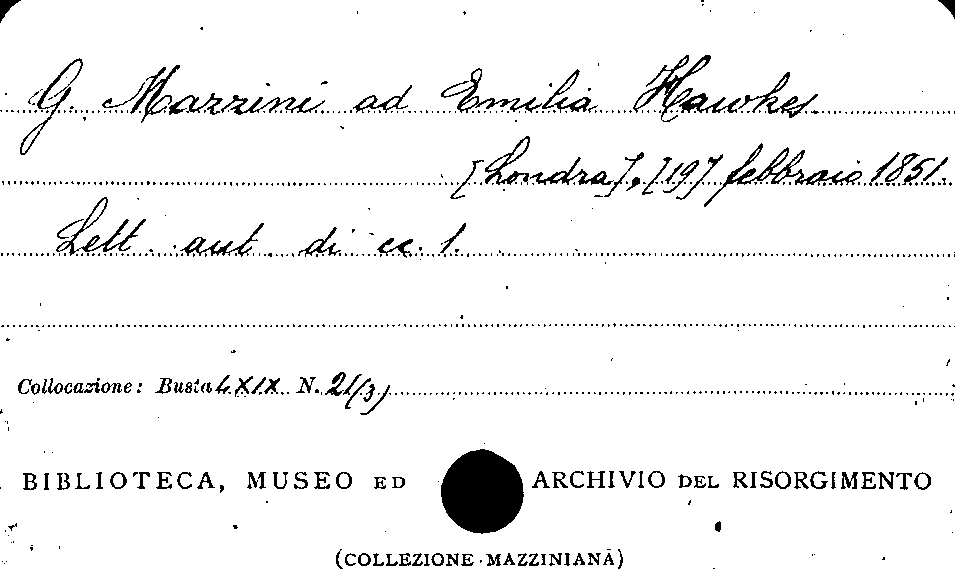 G. Mazzini ad Emilia Hawkes
[Londra], [19] febbraio 1851.
Lett. aut. di cc. 1.
Collocazione: Busta LXIX N. 21(3)
BIBLIOTECA, MUSEO ED ARCHIVIO DEL RISORGIMENTO
(COLLEZIONE MAZZINIANA)